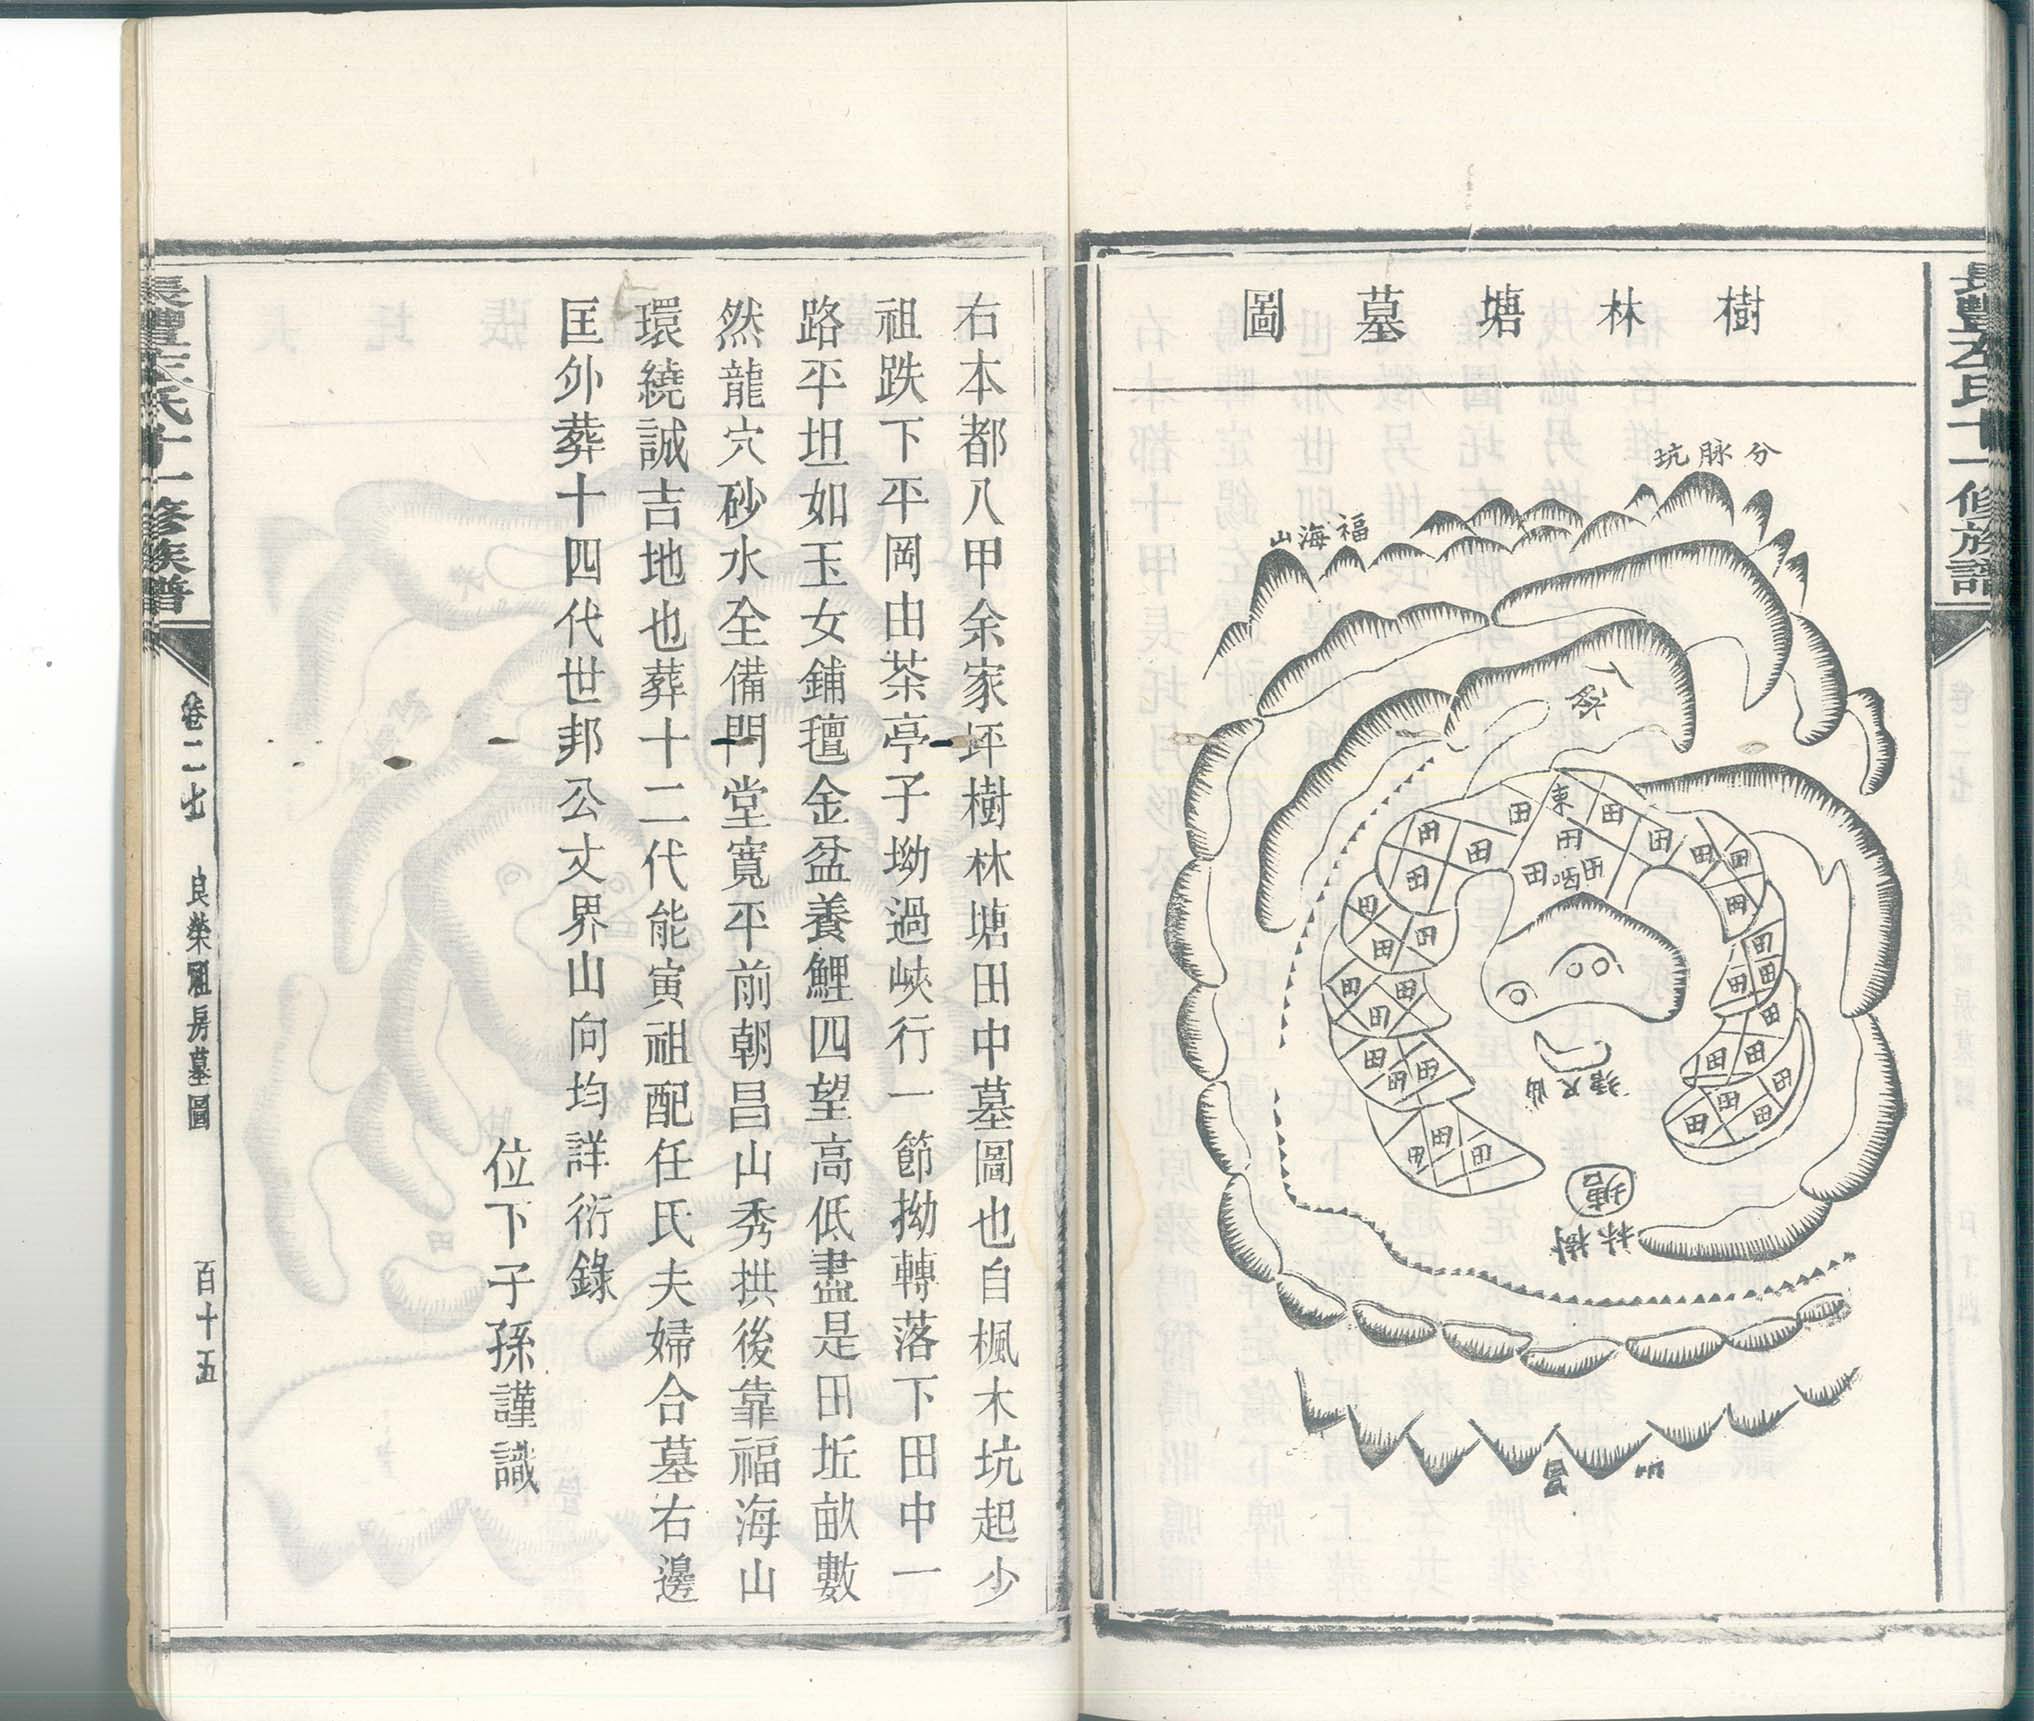 長豐左氏十一修族譜
樹林塘墓圖
分脉坑
福海山
八
東
田
田
田
田
田
田
塘
樹林
昌
山
右本都八甲余家坪樹林塘田中墓圖也自楓木坑起少
祖跌下平岡由茶亭子坳過峽行一節拗轉落下田中一
路平坦如玉女鋪氊金盆養鯉四望高低盡是田坵畝數
然龍穴砂水全備門堂寬平前朝昌山秀拱後靠福海山
環繞誠吉地也葬十二代能寅祖配任氏夫婦合墓右邊
匡外葬十四代世邦公丈界山向均詳衍錄
位下子孫謹識
長豐左氏十一修族譜
卷二七
良榮祖房墓圖
百十五